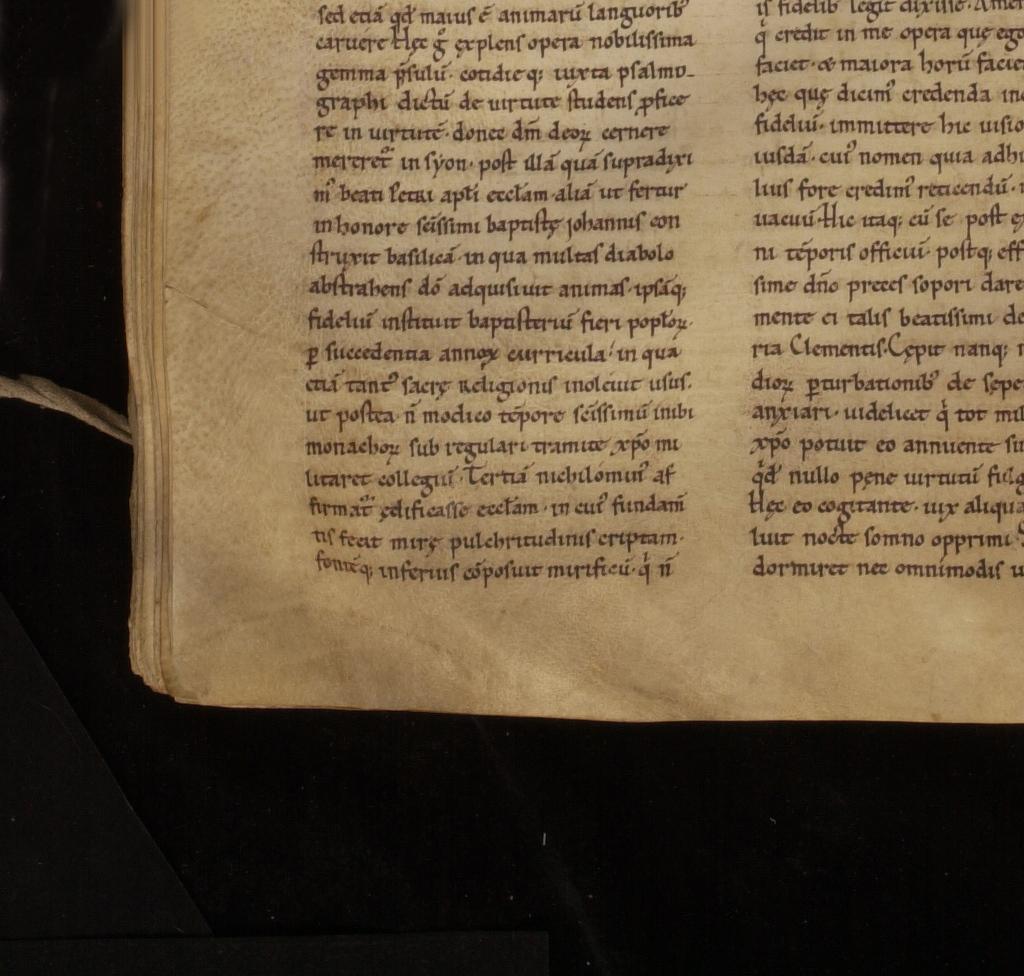 sed etiā qđ maius ē animarū languorib᷒
caruere Hęc ḡ explens opera nobilissima
gemma p̄sulū· cotidieq; iuxta psalmo-
graphi dictū de uirtute studens ꝓfice
re in uirtutē· donec dm̄ deoꝝ cernere
mereret᷒ in syon· post illā quā supradixi
m᷒ beati Petri apłi eccłam· aliā ut fertur
in honore scīssimi baptistę iohannis con
struxit basilicā· in qua multas diabolo
abstrahens dō adquisiuit animas· ipsāq;
fideliū instituit baptisteriū fieri popłoꝝ·
ꝑ succedentia annoꝝ curricula· in qua
etiā tant᷒ sacrę Religionis inoleuit usus·
ut postea n̄ modico tēpore scīssimū inibi
monachoꝝ sub regulari tramite xp̄o mi
litaret collegiū· Tertiā nichilomin᷒ af
firmat᷒ ędificasse eccłam· in cui᷒ fundam̄
tis fecit mirę pulchritudinis criptam·
fontēq; inferius cōposuit mirificū· q̇ n̄
is fidelib᷒ legit dixisse·
q̇ credit in me opera quę ego
faciet· & maiora horū faciet
hęc quę dicim᷒ credenda
fideliū· immittere hic uisio
iusdā· cui᷒ nomen quia adhu
lius fore credim᷒ reticendū·
uacuū· Hic itaq; cū se post
ni tēporis officiū· postq; eff
sime dn̄o preces sopori dare
mente ei talis beatissimi de
ria Clementis· Cępit nanq;
dioꝝ ꝑturbationib᷒ de sepe
anxiari· uidelicet q̇ tot mil
xp̄o potuit eo annuente su
q̇đ nullo pęne uirtutū fulg
Hęc eo cogitante· uix aliqua
luit nocte somno opprimi·
dormiret nec omnimodis u